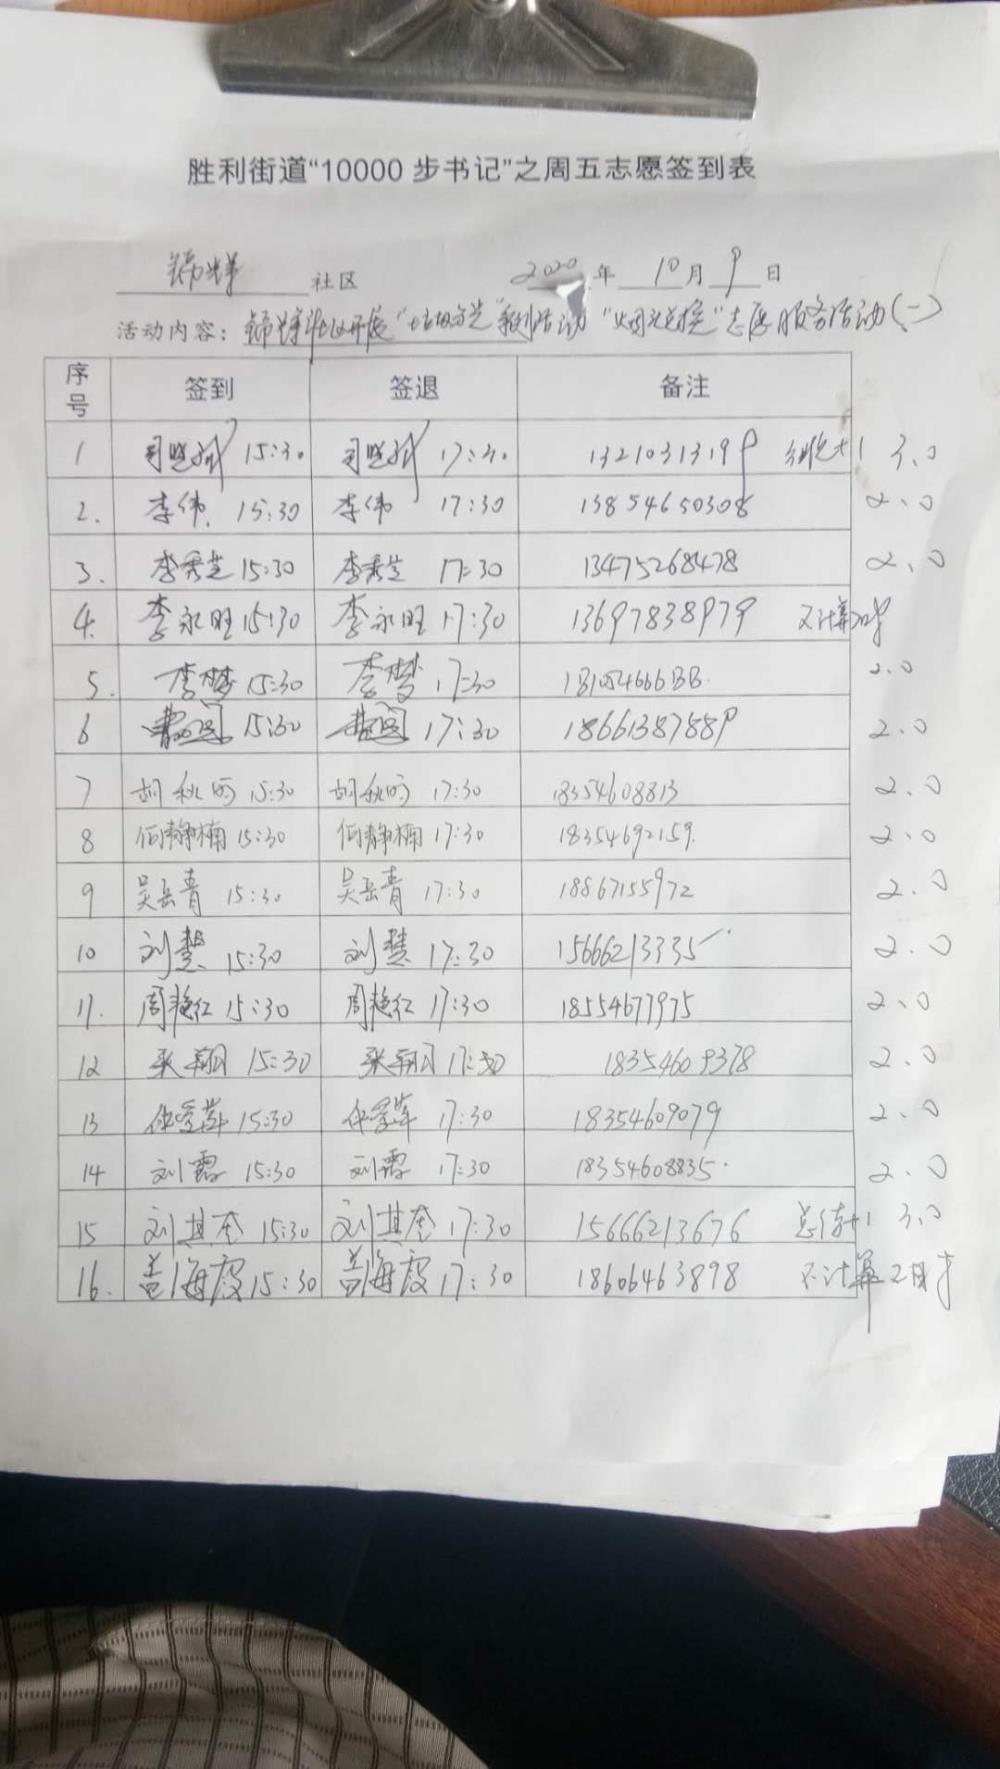 胜利街道“10000 步书记”之周五志愿签到表
锦华 社区 2020 年 10 月 9 日
活动内容: 锦华社区开展 系列活动 志愿服务活动(一)
序号 签到 签退 备注
1 15:30 17:30 13210313199 3.0
2. 李伟 15:30 李伟 17:30 13854650308 2.0
3. 李秀芝 15:30 李秀芝 17:30 13475268478 2.0
4. 李永旺 15:30 李永旺 17:30 13697838979 不计算工时
5. 李梦 15:30 李梦 17:30 2.0
6 15:30 17:30 18661387889 2.0
7 胡秋 15:30 胡秋 17:30 18354608813 2.0
8 何静楠 15:30 何静楠 17:30 18354692159. 2.0
9 吴岳青 15:30 吴岳青 17:30 18867155972 2.0
10 刘慧 15:30 刘慧 17:30 15666213335 2.0
11. 周艳红 15:30 周艳红 17:30 18554677975 2.0
12 张翔 15:30 张翔 17:30 18354609378 2.0
13 15:30 17:30 18354609079 2.0
14 刘霞 15:30 刘霞 17:30 18354608835 2.0
15 刘其奎 15:30 刘其奎 17:30 15666213676 3.0
16. 盖海霞 15:30 盖海霞 17:30 18606463898 不计算工时